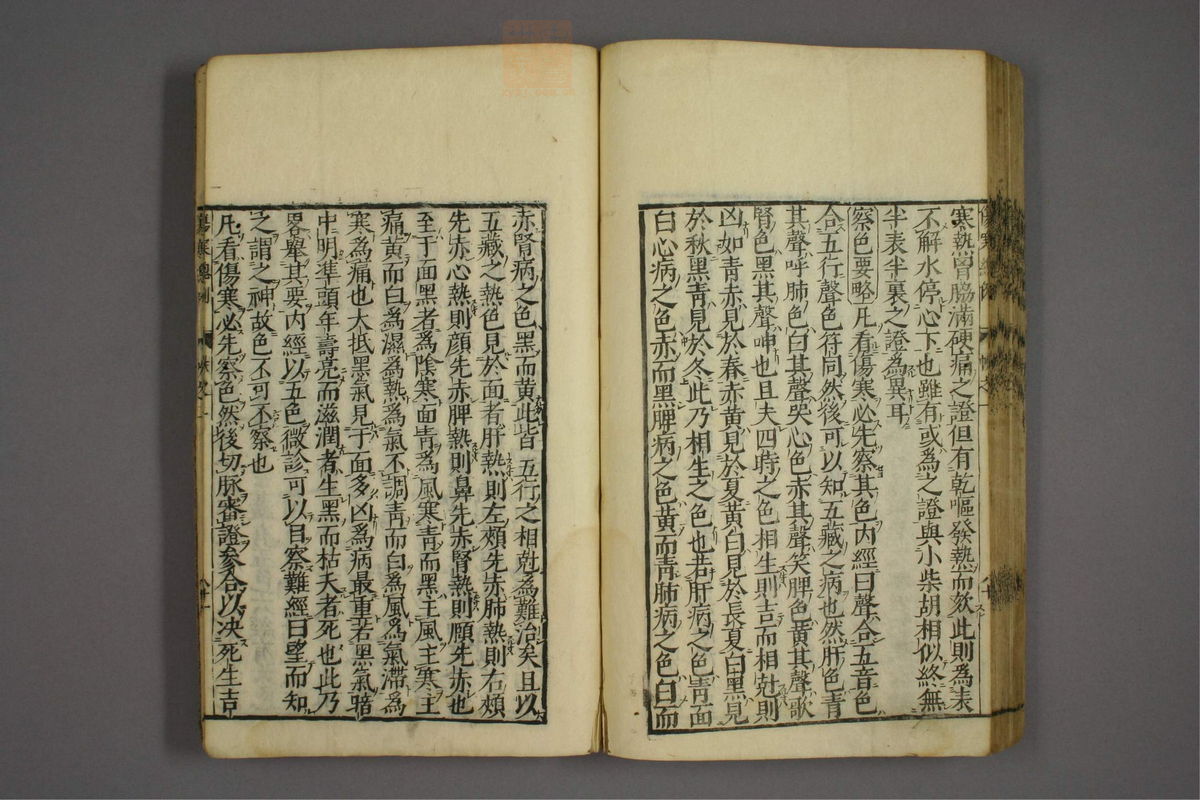 寒熱胷脇滿硬痛之證但有乾嘔發熱而欬此則爲表
不解水停心下也雖有或爲之證與小柴胡相似終無
半表半裏之證爲異耳
察色要略凡看傷寒必先察其色內經曰聲合五音色
合五行聲色符同然後可以知五藏之病也然肝色青
其聲呼肺色白其聲哭心色赤其聲笑脾色黃其聲歌
腎色黑其聲呻也且夫四時之色相生則吉而相尅則
凶如青赤見於春赤黃見於夏黃白見於長夏白黑見
於秋黑青見於冬此乃相生之色也若肝病之色青而
白心病之色赤而黑脾病之色黃而青肺病之色白而
赤腎病之色黑而黃此皆五行之相尅爲難治矣且以
五藏之熱色見於面者肝熱則左頰先赤肺熱則右頰
先赤心熱則顏先赤脾熱則鼻先赤腎熱則頤先赤也
至于面黑者爲陰寒面青爲風寒青而黑主風主寒主
痛黃而白爲濕爲熱爲氣不調青而白爲風爲氣滯爲
寒爲痛也大抵黑氣見于面多凶爲病最重若黑氣暗
中明準頭年壽亮而滋潤者生黑而枯夭者死也此乃
畧舉其要內經以五色微診可以目察難經曰望而知
之謂之神故色不可不察也
凡看傷寒必先察色然後切脉審證參合以决死生吉